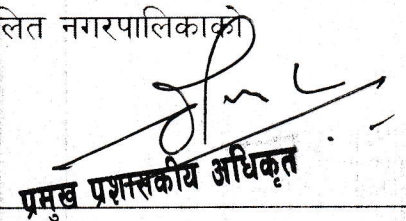 लित नगरपालिकाको
प्रमुख प्रशासकीय अधिकृत